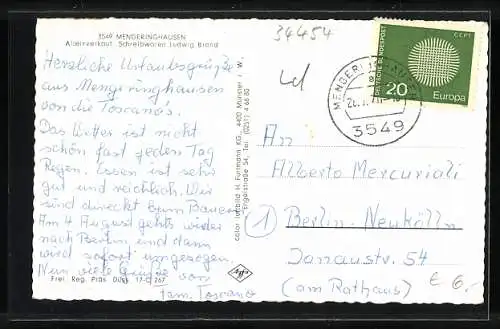 3549 MENGERINGHAUSEN
Alleinverkauf: Schreibwaren Ludwig Brand
Herzliche Urlaubsgrüße
aus Mengeringhausen
von die Toscanos.
Das Wetter ist nicht
schön fast jeden Tag
Regen. Essen ist sehr
gut und reichlich. Wir
sind direckt beim Bauer
Am 4 August gehts wider
nach Berlin, und dann
wird sofort umgesogen.
Nun viele Grüße von
fam. Toscano
Frei. Reg. Präs. Düss. 17-C 267
color luftbild H. Fuhrmann KG., 4400 Münster i. W.
Engelstraße 54, Tel. (0251) 4 66 80
Agfa
34454
MENGERINGHAUSEN
3549
DEUTSCHE BUNDESPOST
CEPT
20
Europa
An
Alberto Mercuriali
1 Berlin-Neukölln
Donaustr. 54
(am Rathaus)
€ 6.-